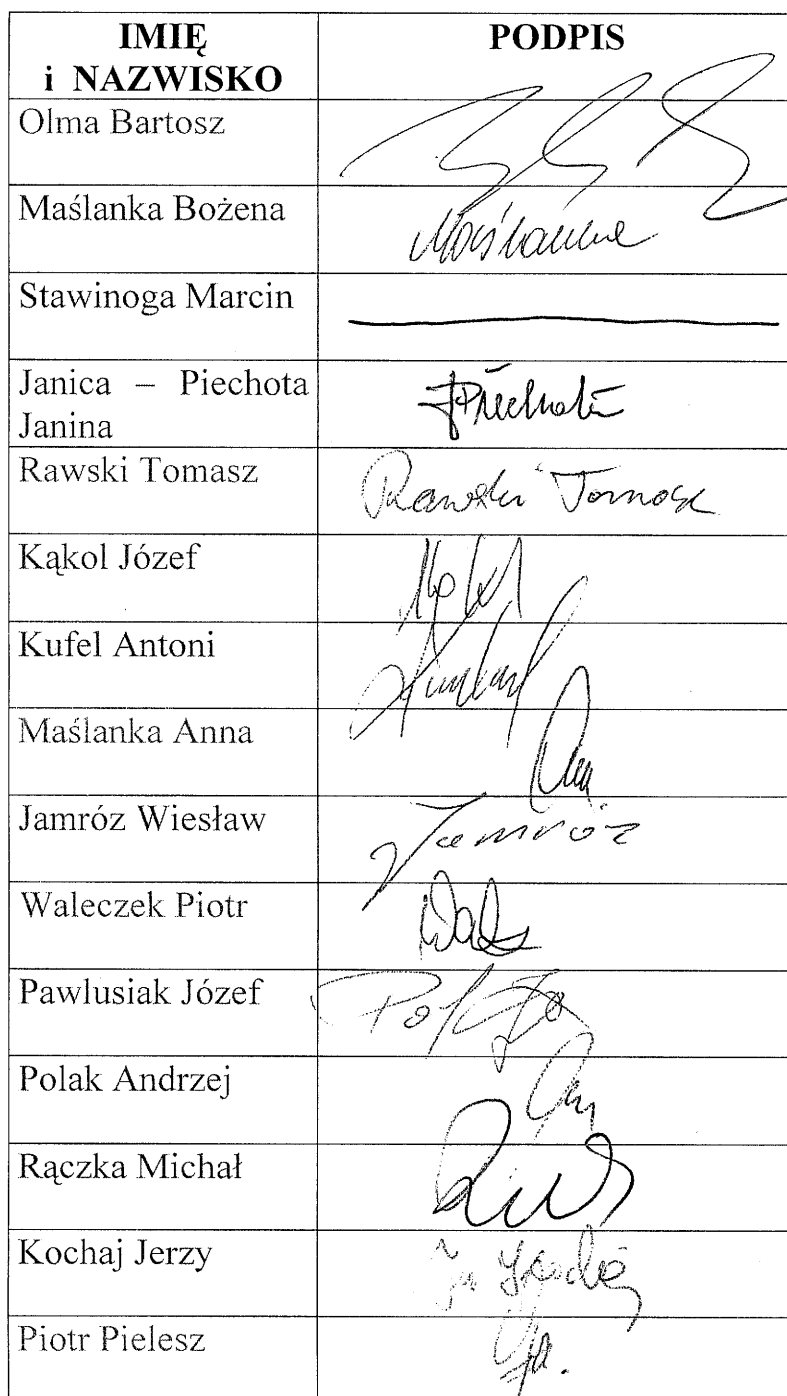 IMIĘ PODPIS
i NAZWISKO
Olma Bartosz
Maślanka Bożena
Stawinoga Marcin
Janica – Piechota
Janina
Rawski Tomasz Rawski Tomasz
Kąkol Józef
Kufel Antoni
Maślanka Anna
Jamróz Wiesław Jamróz
Waleczek Piotr
Pawlusiak Józef
Polak Andrzej
Rączka Michał
Kochaj Jerzy
Piotr Pielesz